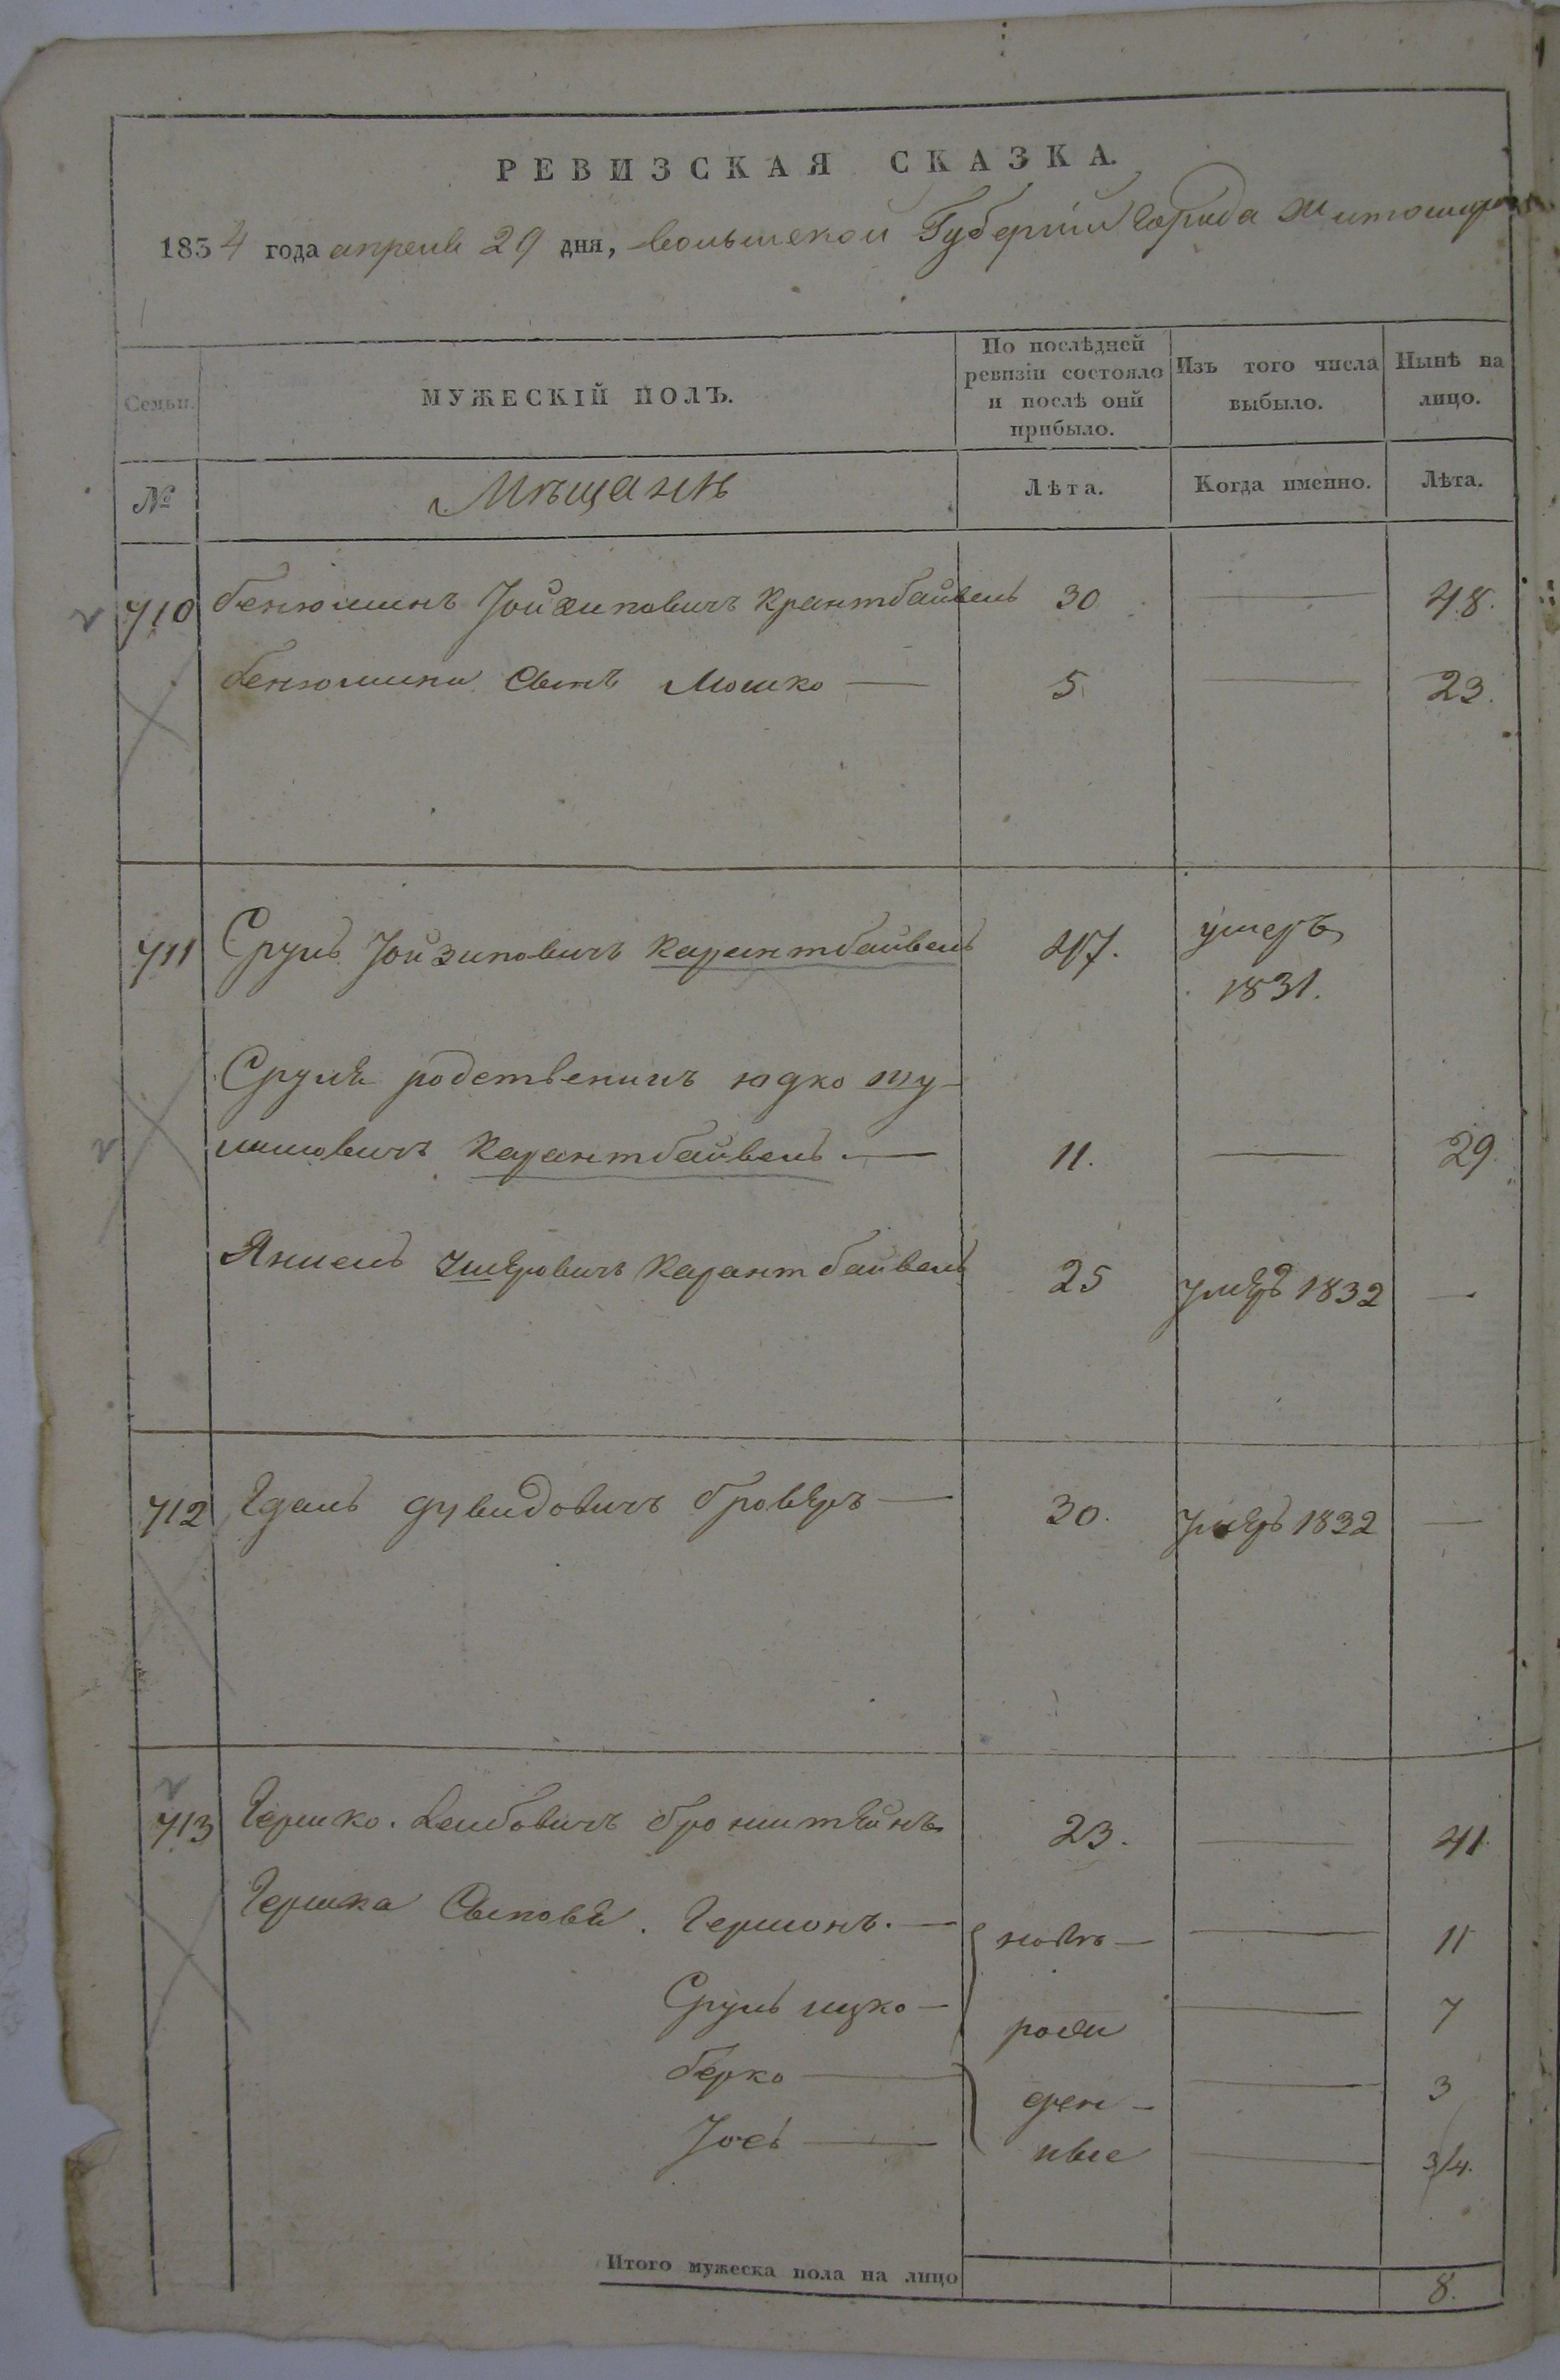 РЕВИЗСКАЯ СКАЗКА.
1834 года апреля 29 дня, волынской Губернiи города Житомира
Семьи.
МУЖЕСКІЙ ПОЛЪ.
По послѣдней ревизіи состояло и послѣ оной прибыло.
Изъ того числа выбыло.
Нынѣ на лицо.
№
Мѣщанѣ
Лѣта.
Когда именно.
Лѣта.
710 бенюминъ Крантбайвель 30 — 48.
бенюмина Сынъ Мошко — 5 — 23.
711 Сруль Іойзиповичъ Карантбайвель 47. умеръ
1831.
Сруля родственикъ юдко
Карантбайвель — 11. — 29
Карантбайвель 25 умеръ 1832 —
712 дувидовичъ бровѣръ — 30. умеръ 1832 —
713 Гершко. Лейбовичъ бронштейнъ 23. — 41.
Гершка Сыновья. Гершонъ. — ново — 11
Сруль ицко — рож — 7
берко — ден — — 3
Іось — ные — 3/4.
Итого мужеска пола на лицо 8.